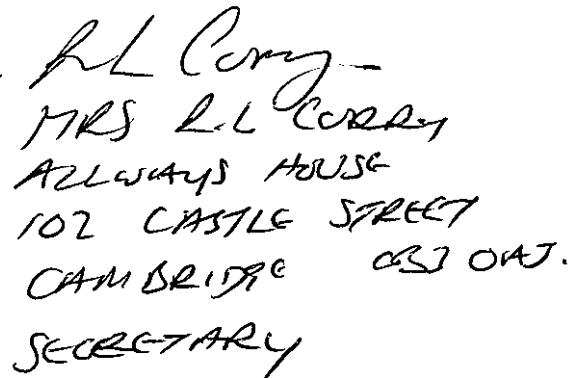 RL Corry
MRS R.L CORRY
ALLWAYS HOUSE
102 CASTLE STREET
CAMBRIDGE CB3 0AJ.
SECRETARY